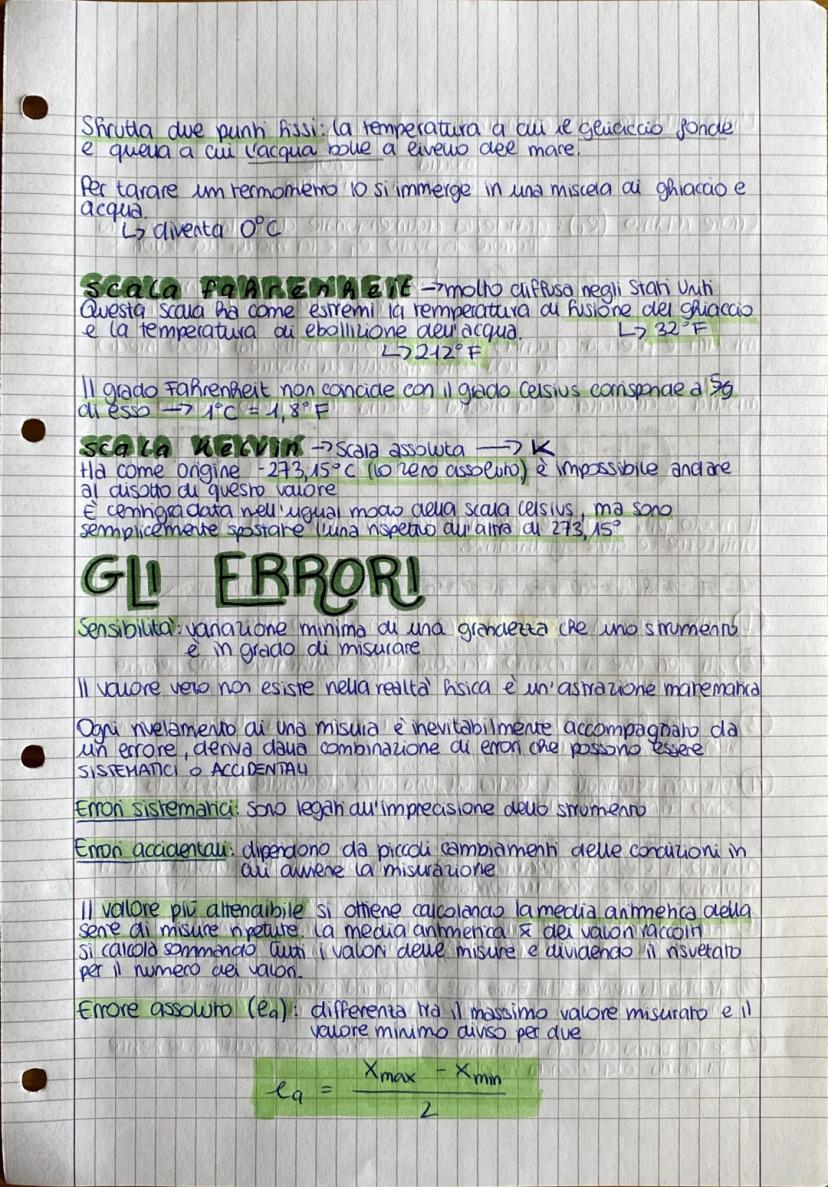 Sfrutta due punti fissi: la temperatura a cui il ghiaccio fonde
e quella a cui l'acqua bolle a livello del mare.
Per tarare un termometro lo si immerge in una miscela di ghiaccio e
acqua.
↳ diventa 0°C
SCALA FAHRENHEIT → molto diffusa negli Stati Uniti
Questa scala ha come estremi la temperatura di fusione del ghiaccio
e la temperatura di ebollizione dell'acqua. ↳ 32°F
↳ 212°F
Il grado Fahrenheit non concide con il grado Celsius corrisponde a 5/9
di esso → 1°C = 1,8°F
SCALA KELVIN → scala assoluta → K
Ha come origine -273,15°C (lo zero assoluto) è impossibile andare
al disotto di questo valore
È centrigradata nell'ugual modo della scala Celsius, ma sono
semplicemente spostate l'una rispetto all'altra di 273,15°
GLI ERRORI
Sensibilità: variazione minima di una grandezza che uno strumento
è in grado di misurare
Il valore vero non esiste nella realtà fisica è un'astrazione matematica
Ogni rivelamento di una misura è inevitabilmente accompagnato da
un errore, deriva dalla combinazione di errori che possono essere
SISTEMATICI o ACCIDENTALI
Errori sistematici: sono legati all'imprecisione dello strumento
Errori accidentali: dipendono da piccoli cambiamenti delle condizioni in
cui avviene la misurazione
Il valore più attendibile si ottiene calcolando la media aritmetica della
serie di misure ripetute. La media aritmetica x̄ dei valori raccolti
si calcola sommando tutti i valori delle misure e dividendo il risultato
per il numero dei valori.
Errore assoluto (ea): differenza tra il massimo valore misurato e il
valore minimo diviso per due
ea = (xmax - xmin) / 2